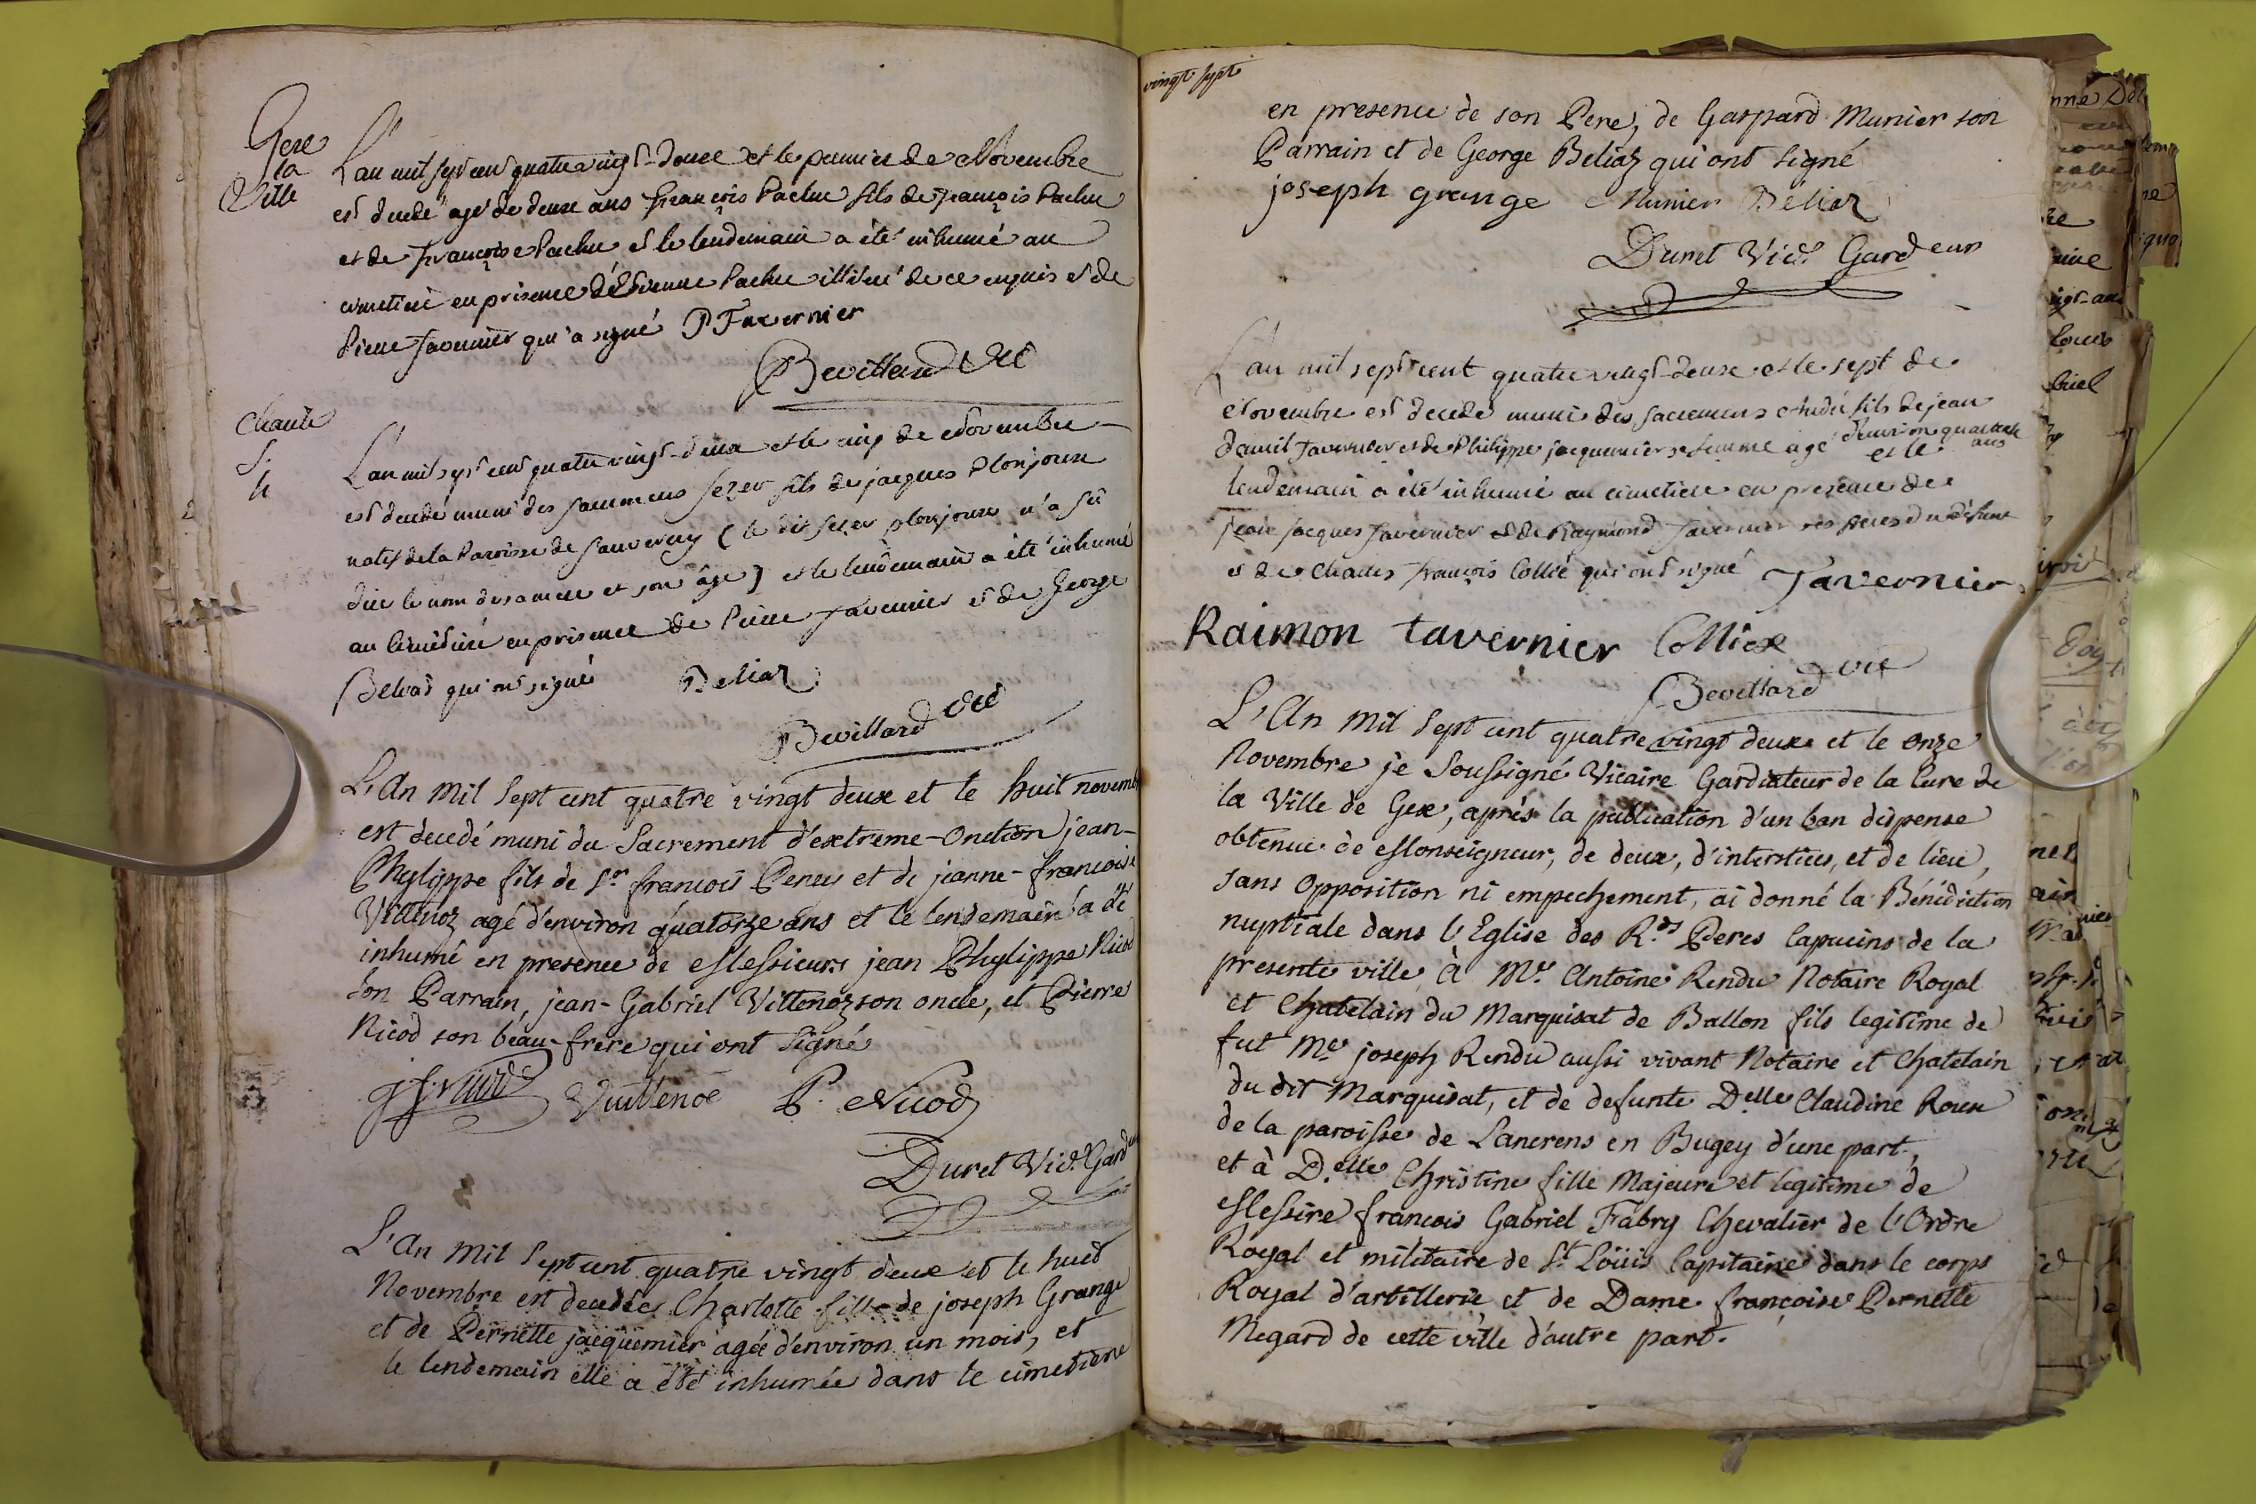 Gex
la
Ville
L'an mil sept cent quatre vingt-douze et le premier de Novembre
est decedé agé de deux ans françois Pachu fils de françois Pachu
et de françoise Pachu et le lendemain a été inhumé au
cimetiere en presence d'Etienne Pachu illiteré de ce enquis et de
Pierre Tavernier qui a signé P Tavernier
Bevillard Vic
L'an mil sept cent quatre vingt-deux et le cinq de Novembre
est decedé muni des sacremens fils de jacques Plonjoux
natif de la Paroisse de Sauverny (le dit Plonjoux n'a sû
dire le nom de sa mere et son âge) et le lendemain a été inhumé
au Cimetiere en presence de Pierre Tavernier et de George
Beliaz qui ont signé Beliaz
Bevillard Vic
L'An Mil Sept cent quatre vingt deux et le huit novemb
est decedé muni du Sacrement d'extreme-Onction jean-
Phylippe fils de Sr. françois Peney et de jeanne-francoise
agé d'environ quatorze ans et le lendemain a été
inhumé en presence de Messieurs jean Phylippe Nicod
son Parrain, jean-Gabriel son oncle, et Pierre
Nicod son beau-frere qui ont Signé
P. Nicod
Duret Vic. Gard
L'An Mil Sept cent quatre vingt deux et le huit
Novembre est decedée Charlotte fille de joseph Grange
et de Pernette jacquemier agée d'environ un mois, et
le lendemain elle a été inhumée dans le cimetiere
vingt sept
en presence de son Pere, de Gaspard Munier son
Parrain et de George Beliaz qui ont signé
joseph grange Munier Béliaz
Duret Vic. Gardeur
L'an mil sept cent quatre vingt-deux et le sept de
Novembre est decedé muni des sacremens André fils de jean
daniel Tavernier et de Philippe jacquemier sa femme agé d'environ quarante ans et le
lendemain a été inhumé au cimetiere en presence de
jean jacques Tavernier et de Raymond Tavernier ses freres du défunt
et de Charles françois Collié qui ont signé Tavernier
Raimon tavernier Colliex
Bevillard Vic
L'An Mil Sept cent quatre vingt deux et le onze
Novembre je Soussigné Vicaire Gardiateur de la Cure de
la Ville de Gex, aprés la publication d'un ban dispense
obtenue de Monseigneur, de deux, d'interstices, et de lieu,
sans Opposition ni empechement, ai donné la Bénédiction
nuptiale dans l'Eglise des R.ds Peres Capucins de la
presente ville, à Me. Antoine Rendu Notaire Royal
et Chatelain du Marquisat de Ballon fils legitime de
fut Me joseph Rendu aussi vivant Notaire et Chatelain
du dit Marquisat, et de defunte Delle Claudine Roux
de la paroisse de Lancrens en Bugey d'une part,
et à Delle Christine fille Majeure et legitime de
Messire françois Gabriel Fabry Chevalier de l'Ordre
Royal et militaire de St. Loüis Capitaine dans le corps
Royal d'artillerie et de Dame françoise Pernette
Megard de cette ville d'autre part.